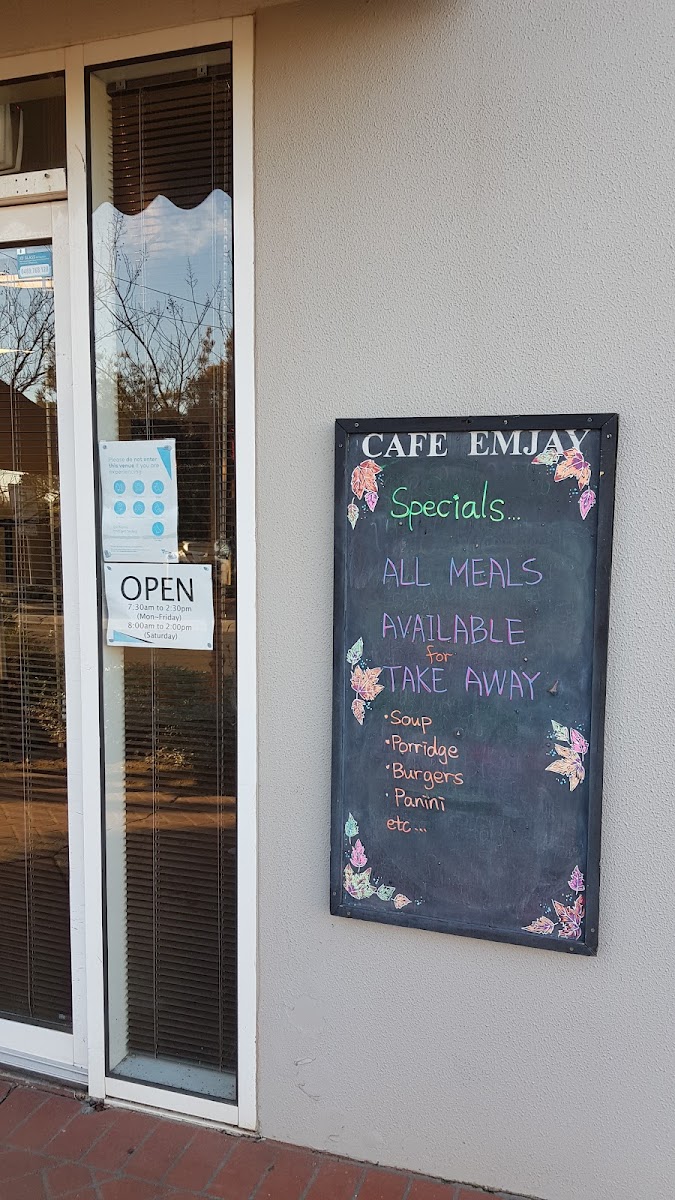 Please do not enter
this venue if you are
OPEN
7:30am to 2:30pm
(Mon-Friday)
8:00am to 2:00pm
(Saturday)
CAFE EMJAY
Specials...
ALL MEALS
AVAILABLE
for
TAKE AWAY
•Soup
•Porridge
•Burgers
•Panini
etc...